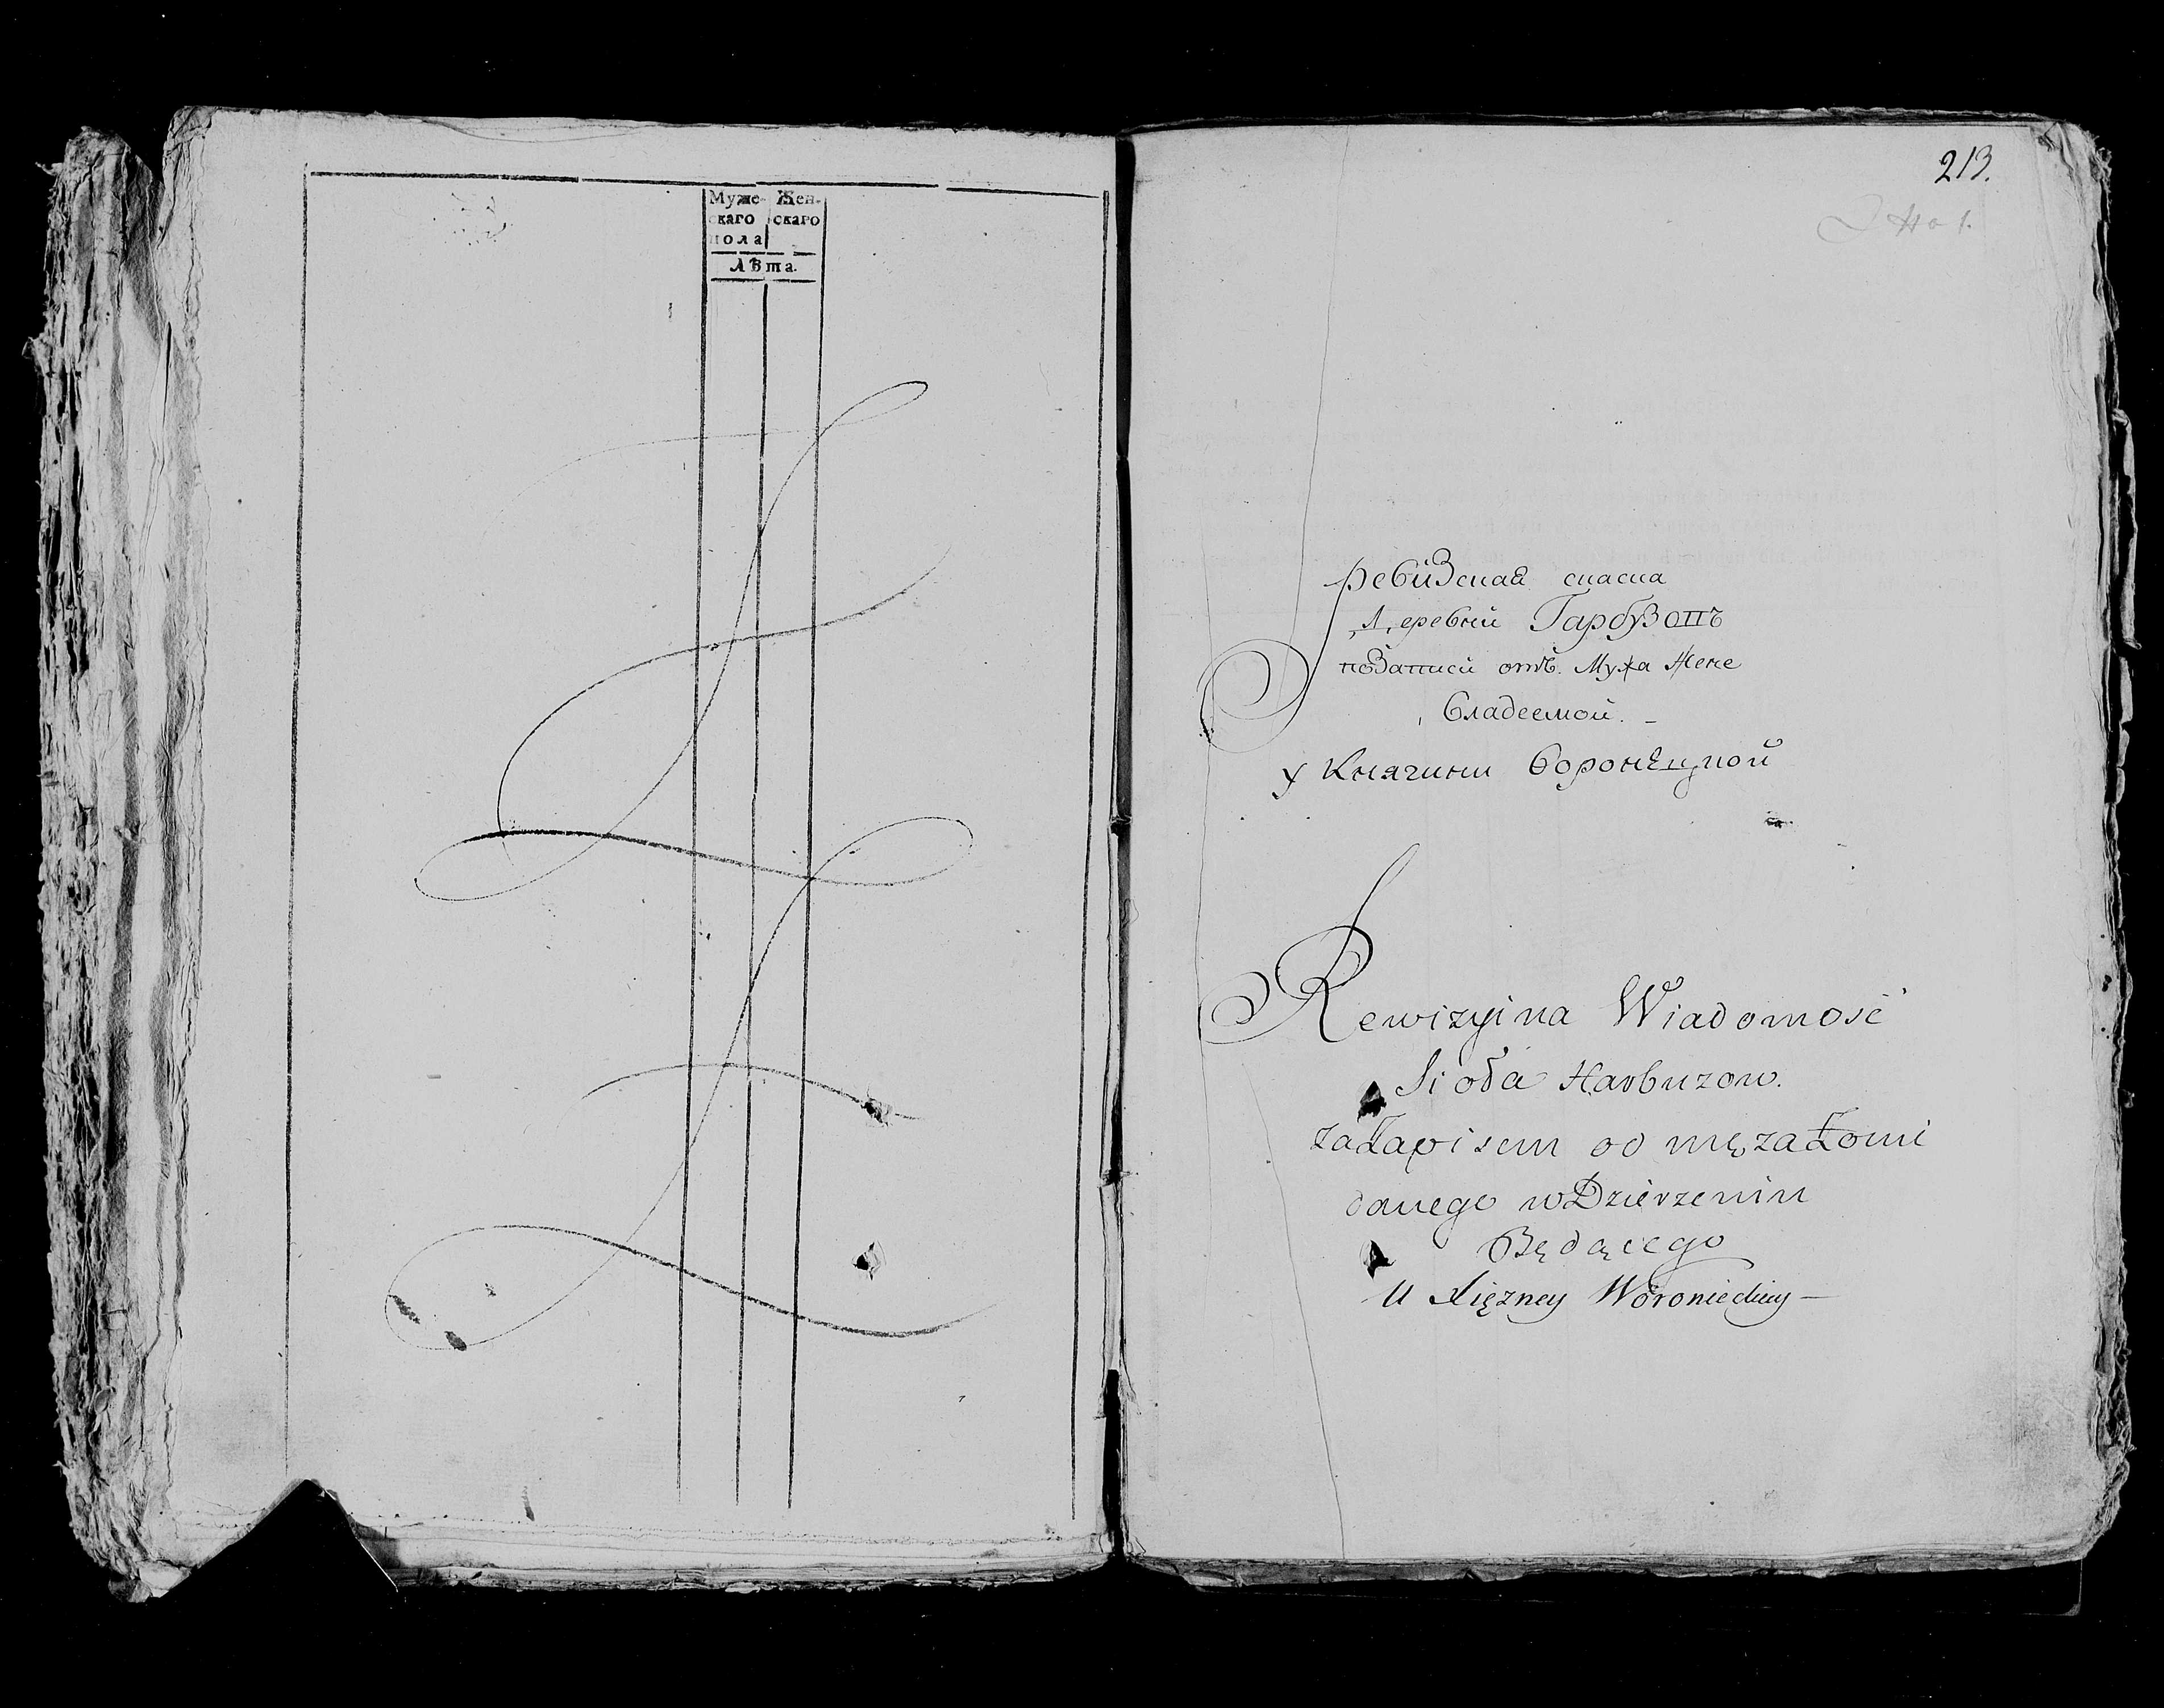 Муже- Жен-
скаго скаго
пола
Лѣта.
213.
Ревизская сказка
Деревни Гарбузовъ
позаписи отъ Мужа Жене
владеемой. -
у Княгини Воронѣцкой
Rewizyina Wiadomość
Sioła Harbuzow.
zaZapisem od mężaZoni
danego wDzierzeniu
Będącego
U Xiężney Woronieckiey —